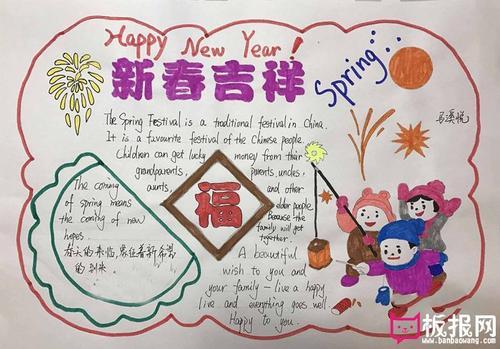 Happy New Year!
新春吉祥
Spring
The Spring Festival is a traditional festival in China.
It is a favourite festival of the Chinese people.
Children can get lucky money from thair
grandparents, parents, uncles,
aunts, and other
elder people.
Because the
family will get
together.
福
The coming
of spring means
the coming of new
hopes.
春天的来临意味着新希望
的到来
A beautiful
wish to you and
your family - live a happy
live and everything goes well
Happy to you.
马溪悦
板报网
www.banbaowang.com